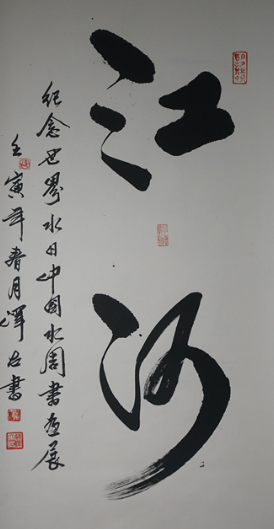 江河
纪念世界水日中国水周书画展
壬寅年春月泽左书